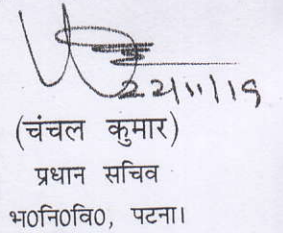 22/11/19
(चंचल कुमार)
प्रधान सचिव
भ0नि0वि0, पटना।